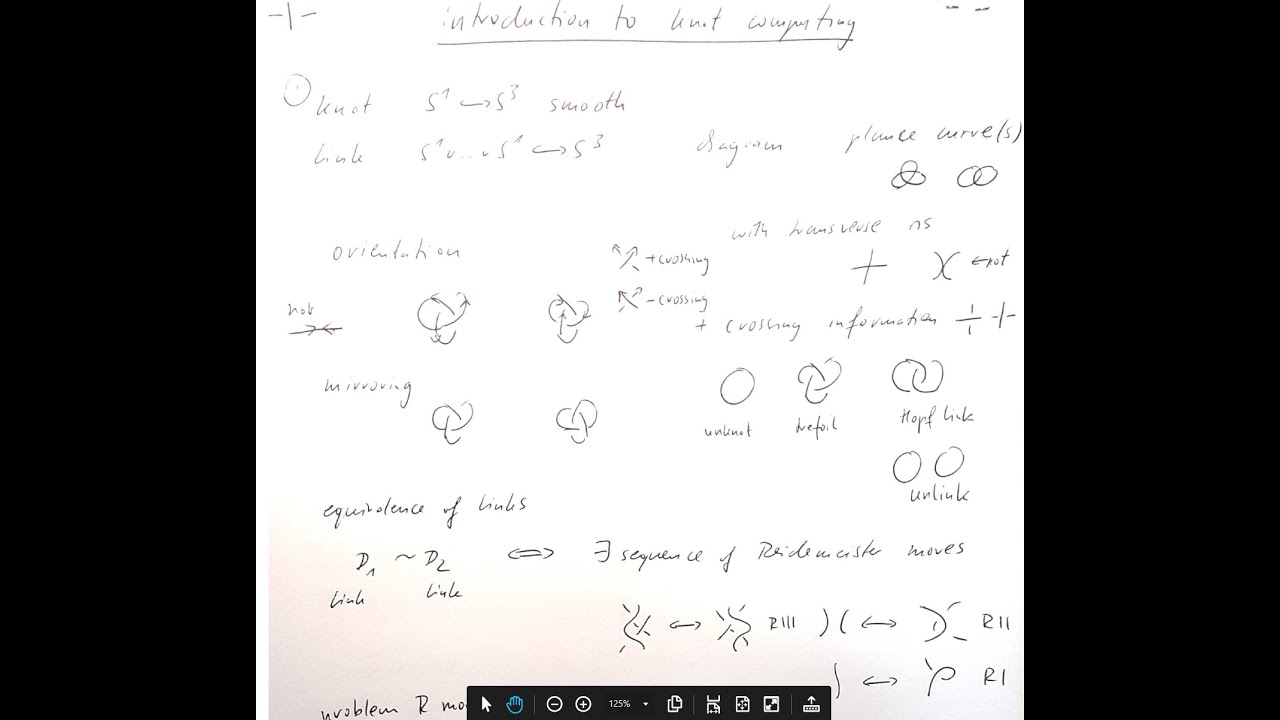 introduction to knot computing
knot S¹ ↪ S³ smooth
link S¹ ∪ .. ∪ S¹ ↪ S³
diagram
plane curve(s)
with transverse ns
← not
orientation
+ crossing
- crossing
not
+ crossing information
mirroring
unknot trefoil Hopf link
unlink
equivalence of links
D₁ ~ D₂ ⇔ ∃ sequence of Reidemeister moves
link link
↔ RIII ) ( ↔ RII
↔ RI
problem R mo
125%